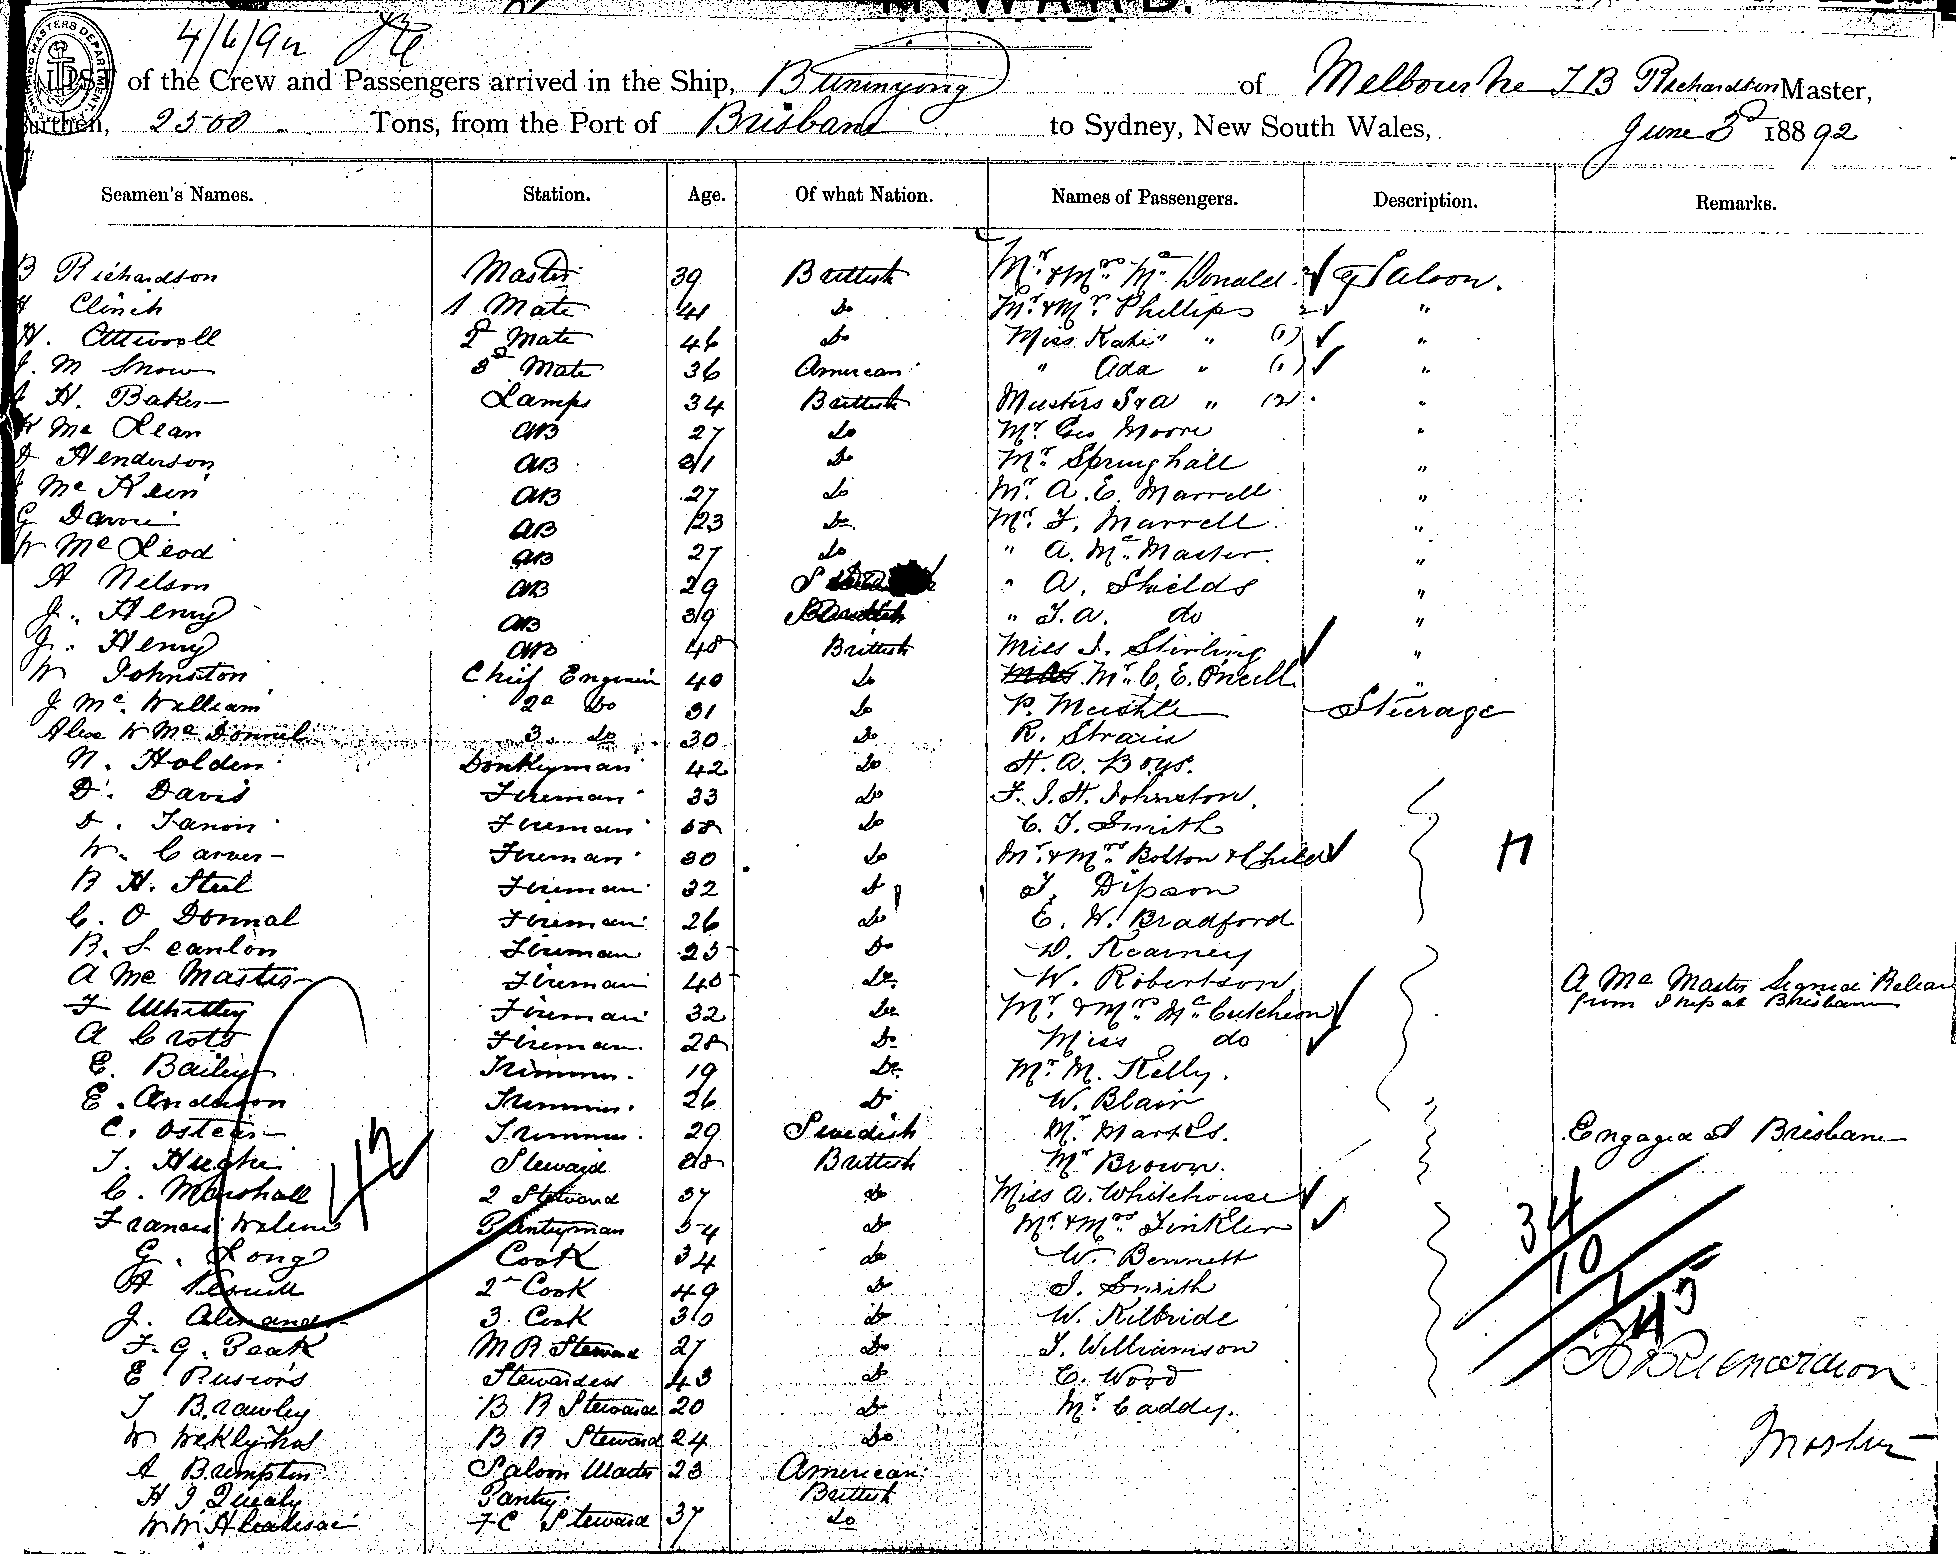 INWARD.
4/6/92
LIST of the Crew and Passengers arrived in the Ship, Buninyong of Melbourne T B Richardson Master,
Burthen, 2500 Tons, from the Port of Brisbane to Sydney, New South Wales, June 3d 18892
Seamen's Names. Station. Age. Of what Nation. Names of Passengers. Description. Remarks.
B Richardson Master 39 Brittish Mr. & Mrs. Mc Donald. 2 Saloon.
H Clinch 1 Mate 41 do Mr & Mrs Phillips 2 "
H. Attwooll 2d Mate 46 do Miss Katie " (1) "
J. M Snow 3d Mate 36 American " Ada " (1) "
J H. Baker Lamps 34 Brittish Masters S & A " (2) "
W Mc Lean AB 27 do Mr Geo Moore "
D Henderson AB 31 do Mr. Springhall "
J Mc Kein AB 27 do Mr. A. E. Marrell "
G Davie AB 23 do Mr. F. Marrell "
W Mc Leod AB 27 do " A. Mc Master. "
A Nelson AB 29 " A. Shields "
J. Henry AB 39 Brittish " J. A. do "
J. Henry AB 48 Brittish Miss J. Stirling "
W Johnston Chief Engineer 40 do Mr. C. E. O'Neill "
J Mc. William 2d do 31 do P. Meishke Steerage
Alex W Mc Donnel 3. do 30 do R. Strain
N. Holden Donkeyman 42 do H. A. Boys.
D. Davis Fireman 33 do F. J. H. Johnston.
Fireman 38 do C. J. Smith
W. Carver Fireman 30 do Mr. & Mrs Bolton & Child
R H. Steel Fireman 32 do J. Dipson
C. O Donnal Fireman 26 do E. W. Bradford
R. Scanlon Fireman 25 do D. Kearney
A Mc Master Fireman 40 do W. Robertson A Mc Master Signed Release
F Whittey Fireman 32 do Mr & Mrs Mc Cutcheon from Ship at Brisbane
A Crots Fireman 28 do Miss do
E. Bailey Trimmer. 19 do Mr. M. Kelly.
E. Anderson Trimmer. 26 do W. Blair
C. Osteen Trimmer. 29 Swedish Mr. Marks. Engaged at Brisbane
T. Hughes Steward 28 Brittish Mr Brown.
C. Marshall 2 Steward 37 do Miss A. Whitehouse
Francis Pantryman 54 do Mr. & Mrs Finkler 34
G. Long Cook 34 do W. Bennett 10
A 2d Cook 49 do J. Smith 1
J. Alexander 3. Cook 30 do W. Kilbride 45
F. G. Peak M R Steward 27 do J. Williamson T B Richardson
E Stewardess 43 do C. Wood
T Brawley B R Steward 20 do Mr Caddy. Master
W B R Steward 24 do
A Brumpton Saloon Waiter 23 American
H J Quealy Pantry Brittish
W W F C Steward 37 do